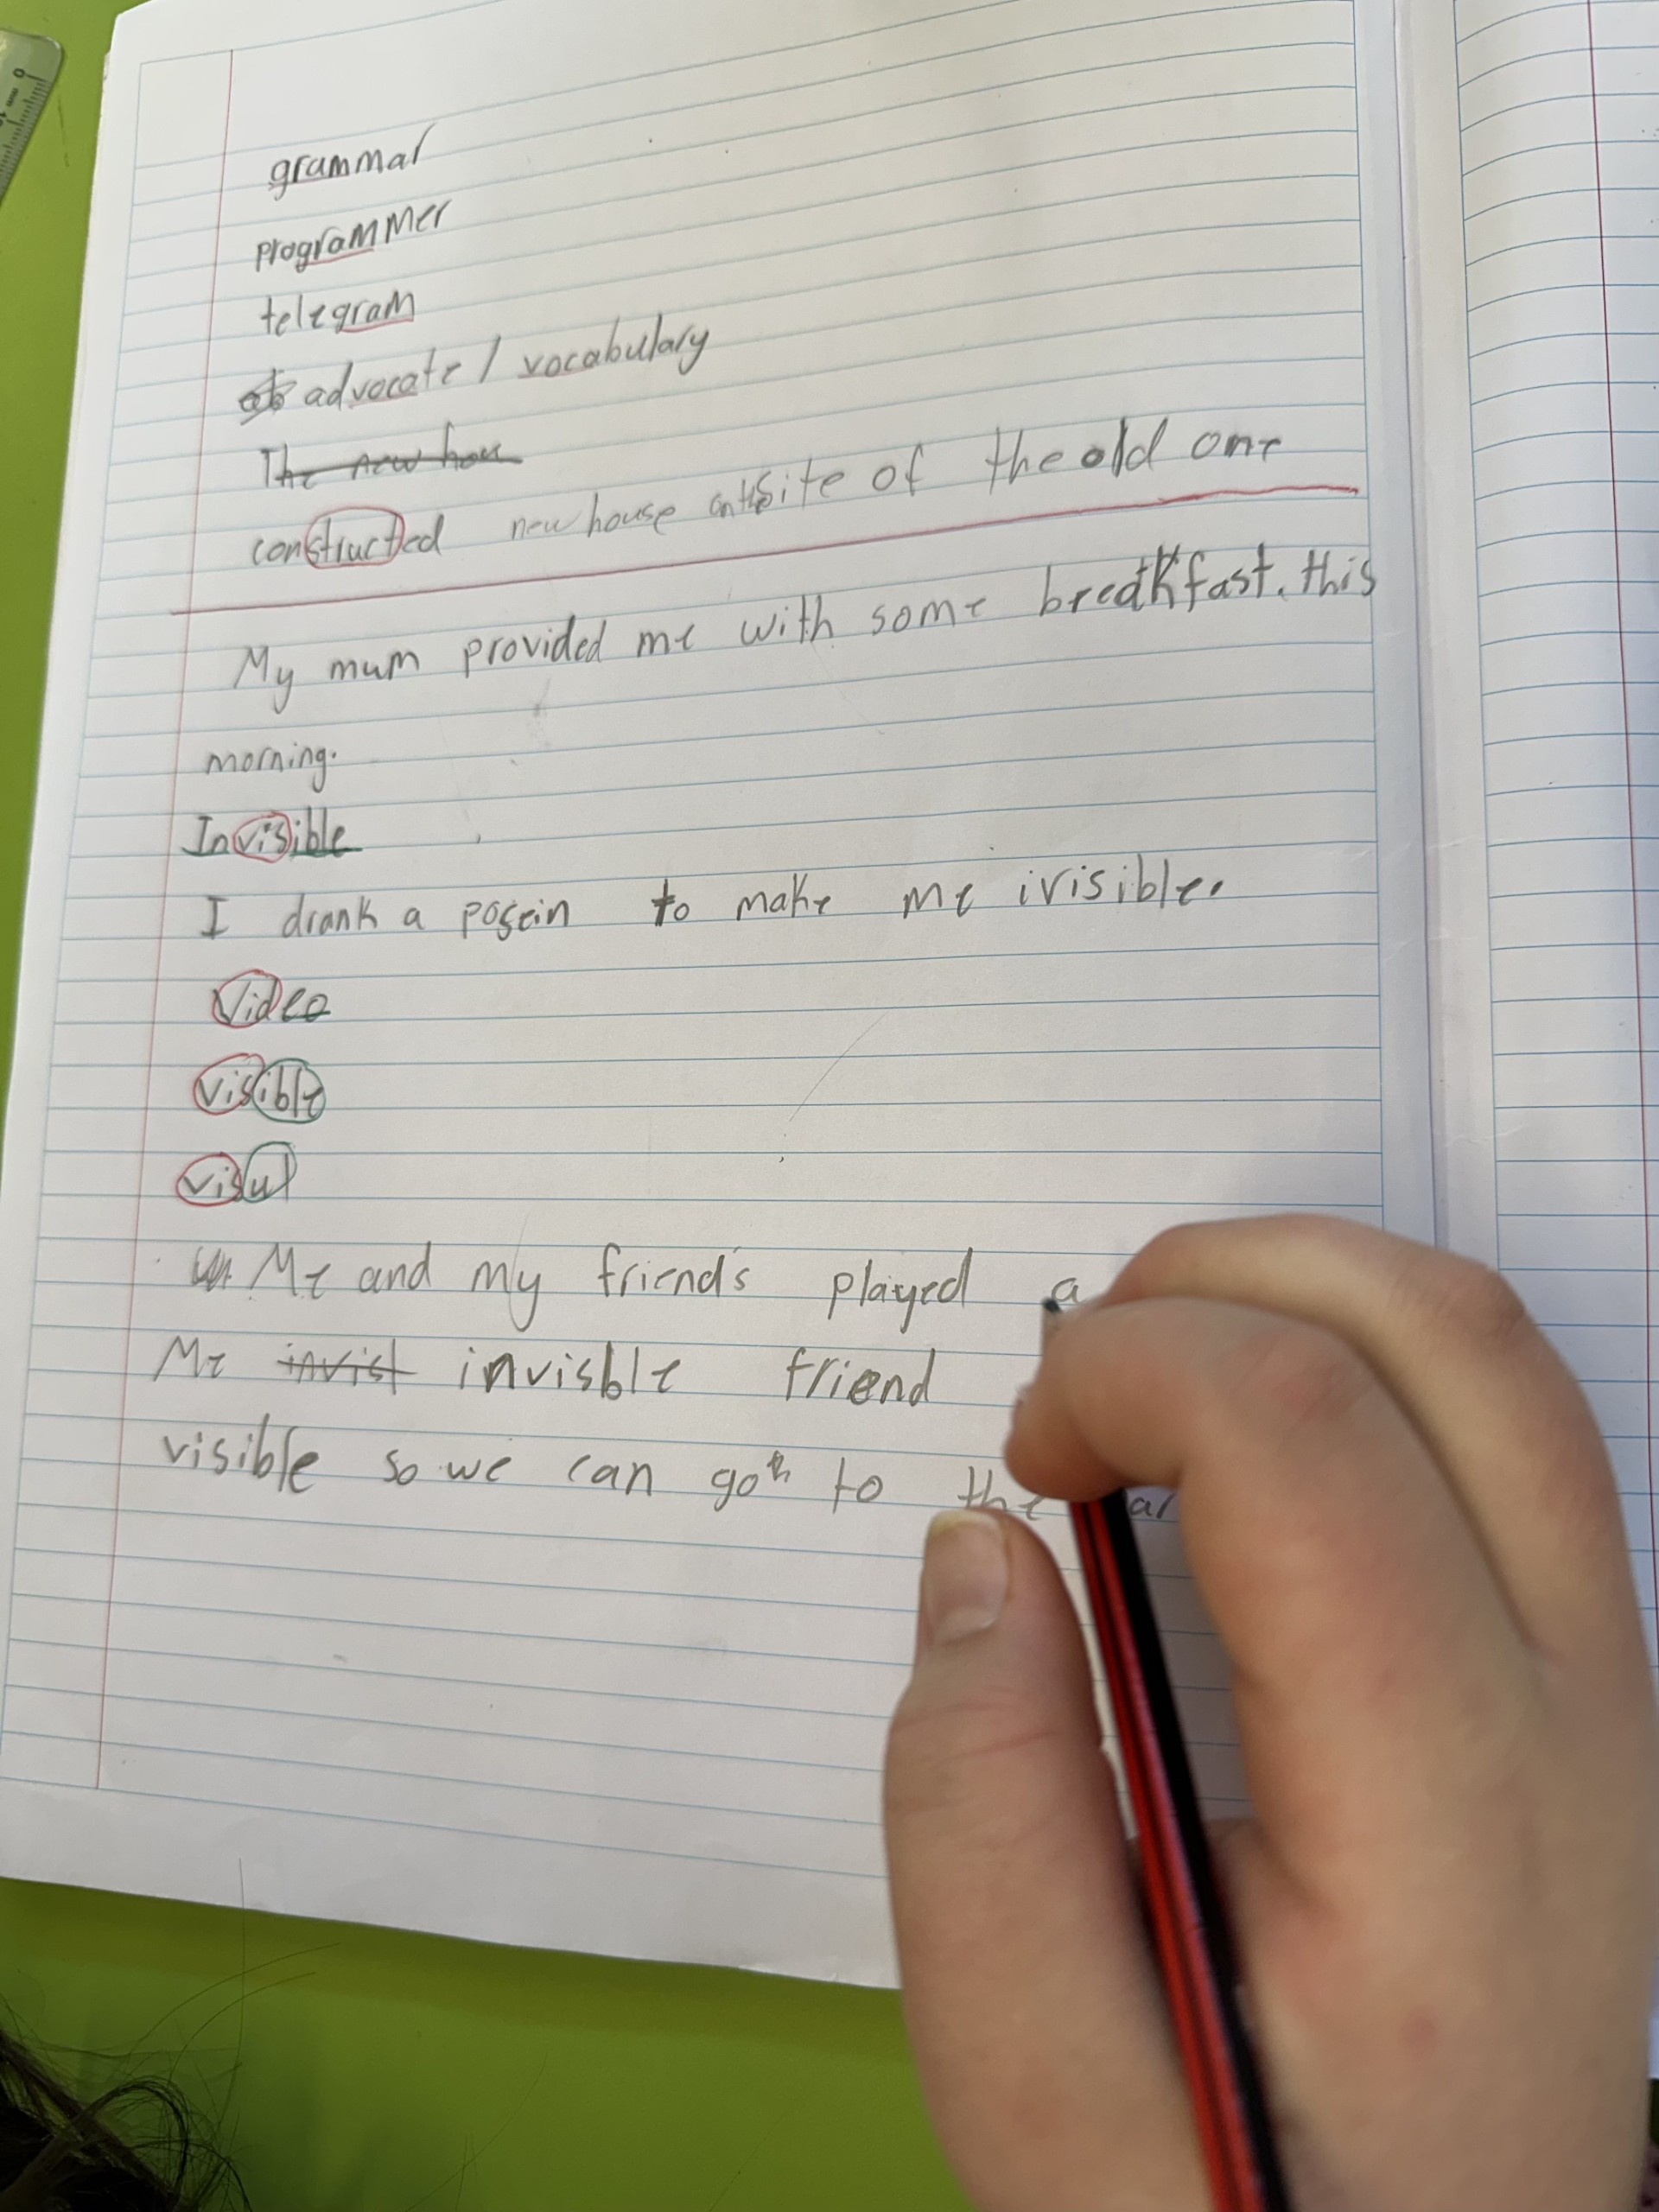 grammar
programmer
telegram
advocate / vocabulary
The new hou
constructed new house on the site of the old one
My mum provided me with some breakfast. this
morning.
Invisible
I drank a to make me ivisible.
Video
visible
visul
Me and my friends played a
Me invist invisble friend
visible so we can go to the